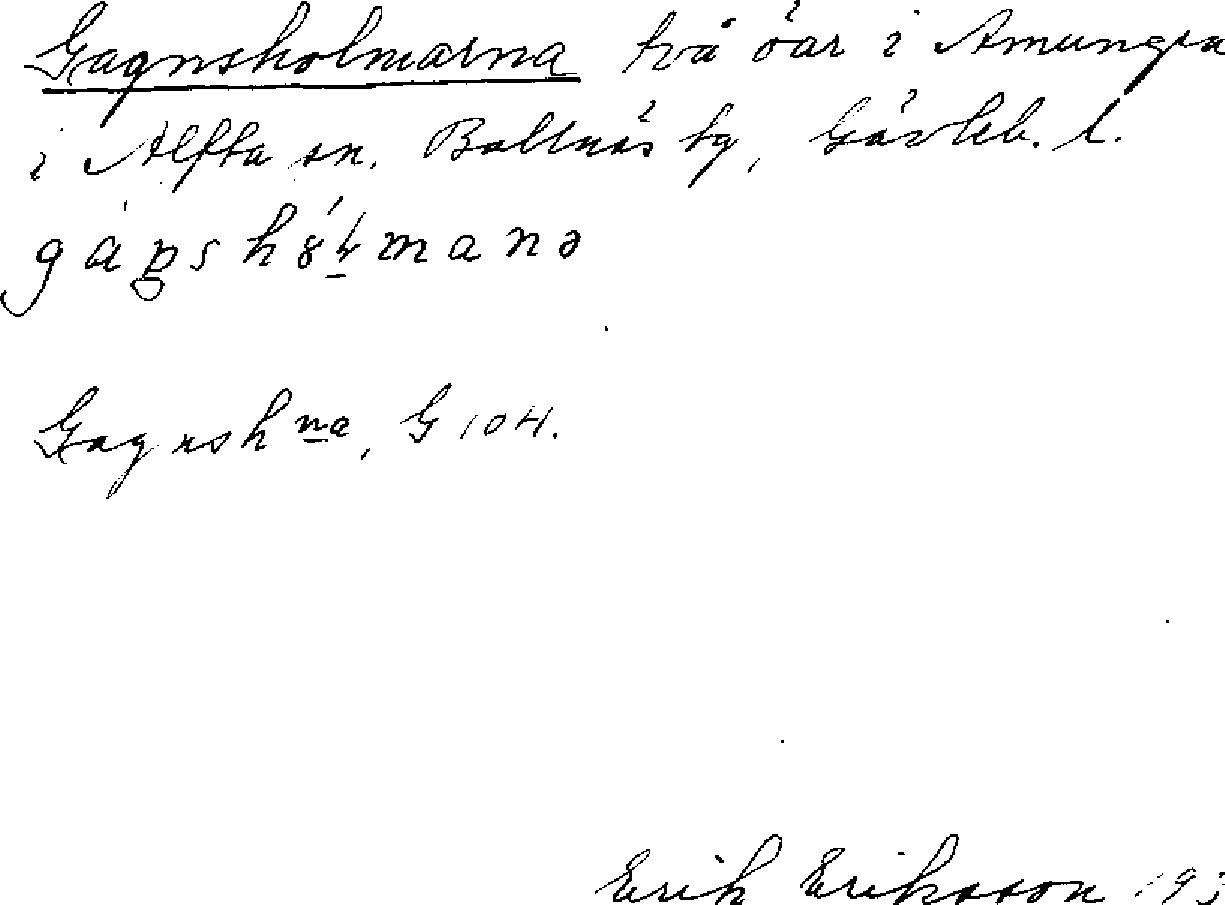 Gagnsholmarna två öar i Amungen
i Alfta sn. Bollnäs tg, Gävleb. l.
Gagnsh na, G 104.
Erik Eriksson 193